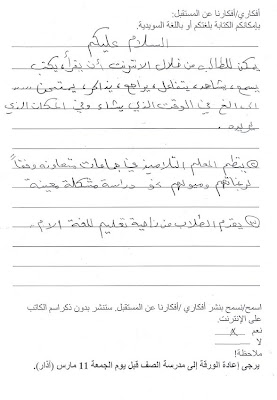 أفكاري/أفكارنا عن المستقبل:
بإمكانكم الكتابة بلغتكم أو باللغة السويدية.
السلام عليكم
يمكن للطالب من خلال الانترنت أن يقرأ، يكتب
يسمع، يشاهد، يتفاعل، يراجع، يذاكر، يمتحن
الخ في الوقت الذي يشاء وفي المكان الذي
يريده.
② ينظم المعلم التلاميذ في جماعات متعاونة وفقاً
لرغباتهم وميولهم نحو دراسة مشكلة معينة
③ يقدم الطلاب من ناحية تعليم اللغة الأم.
اسمح/نسمح بنشر أفكاري /أفكارنا عن المستقبل. ستنشر بدون ذكر اسم الكاتب
على الإنترنت.
نعم x
لا
ملاحظة!
يرجى إعادة الورقة إلى مدرسة الصف قبل يوم الجمعة 11 مارس (آذار).